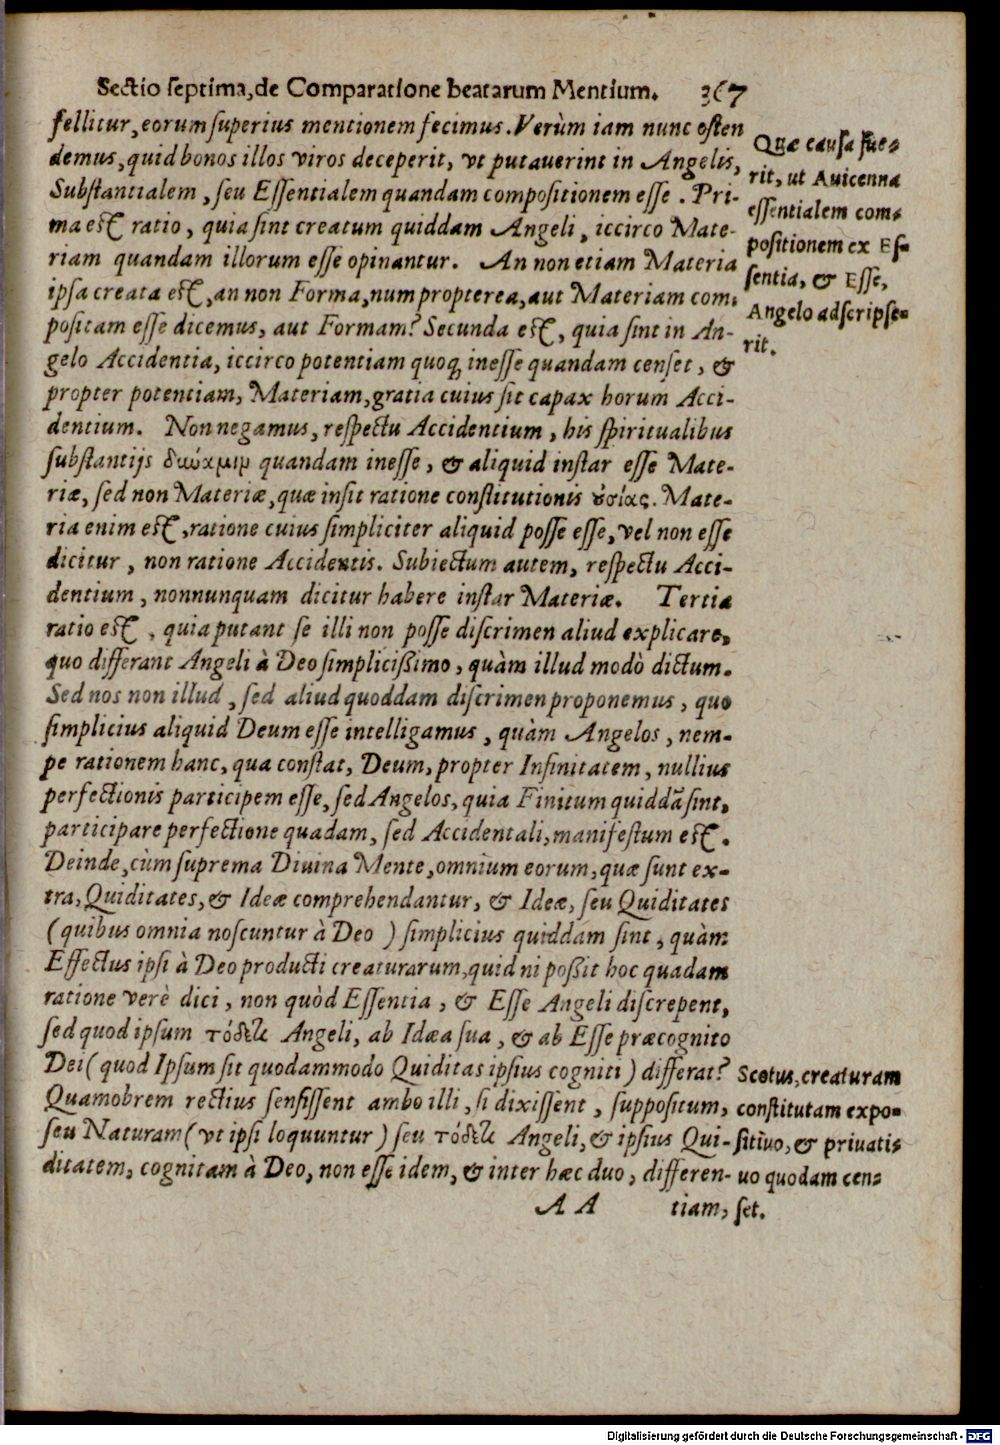 Sectio septima, de Comparatione beatarum Mentium. 367
fellitur, eorum superius mentionem fecimus. Verùm iam nunc osten
demus, quid bonos illos viros deceperit, vt putauerint in Angelis,
Substantialem, seu Essentialem quandam compositionem esse. Pri-
ma est ratio, quia sint creatum quiddam Angeli, iccirco Mate-
riam quandam illorum esse opinantur. An non etiam Materia
ipsa creata est, an non Forma, num propterea, aut Materiam com-
positam esse dicemus, aut Formam? Secunda est, quia sint in An-
gelo Accidentia, iccirco potentiam quoq; inesse quandam censet, &
propter potentiam, Materiam, gratia cuius sit capax horum Acci-
dentium. Non negamus, respectu Accidentium, his spiritualibus
substantijs δωύαμιμ quandam inesse, & aliquid instar esse Mate-
riæ, sed non Materiæ, quæ insit ratione constitutionis ȣσίας. Mate-
ria enim est, ratione cuius simpliciter aliquid posse esse, vel non esse
dicitur, non ratione Accidentis. Subiectum autem, respectu Acci-
dentium, nonnunquam dicitur habere instar Materiæ. Tertia
ratio est, quia putant se illi non posse discrimen aliud explicare,
quo differant Angeli à Deo simplicißimo, quàm illud modò dictum.
Sed nos non illud, sed aliud quoddam discrimen proponemus, quo
simplicius aliquid Deum esse intelligamus, quàm Angelos, nem-
pe rationem hanc, qua constat, Deum, propter Infinitatem, nullius
perfectionis participem esse, sed Angelos, quia Finitum quiddã sint,
participare perfectione quadam, sed Accidentali, manifestum est.
Deinde, cùm suprema Diuina Mente, omnium eorum, quæ sunt ex-
tra, Quiditates, & Ideæ comprehendantur, & Ideæ, seu Quiditates
(quibus omnia noscuntur à Deo) simplicius quiddam sint, quàm
Effectus ipsi à Deo producti creaturarum, quid ni poßit hoc quadam
ratione verè dici, non quòd Essentia, & Esse Angeli discrepent,
sed quod ipsum τόδετι Angeli, ab Idæa sua, & ab Esse præcognito
Dei (quod Ipsum sit quodammodo Quiditas ipsius cogniti) differat?
Quamobrem rectius sensissent ambo illi, si dixissent, suppositum,
seu Naturam (vt ipsi loquuntur) seu τόδετι Angeli, & ipsius Qui-
ditatem, cognitam à Deo, non esse idem, & inter hæc duo, differen-
A A tiam,
Quæ causa fue-
rit, ut Auicenna
essentialem com-
positionem ex Es-
sentia, & Esse,
Angelo adscripse-
rit.
Scotus, creaturam
constitutam expo-
sitiuo, & priuati-
uo quodam cen-
set.
Digitalisierung gefördert durch die Deutsche Forschungsgemeinschaft - DFG